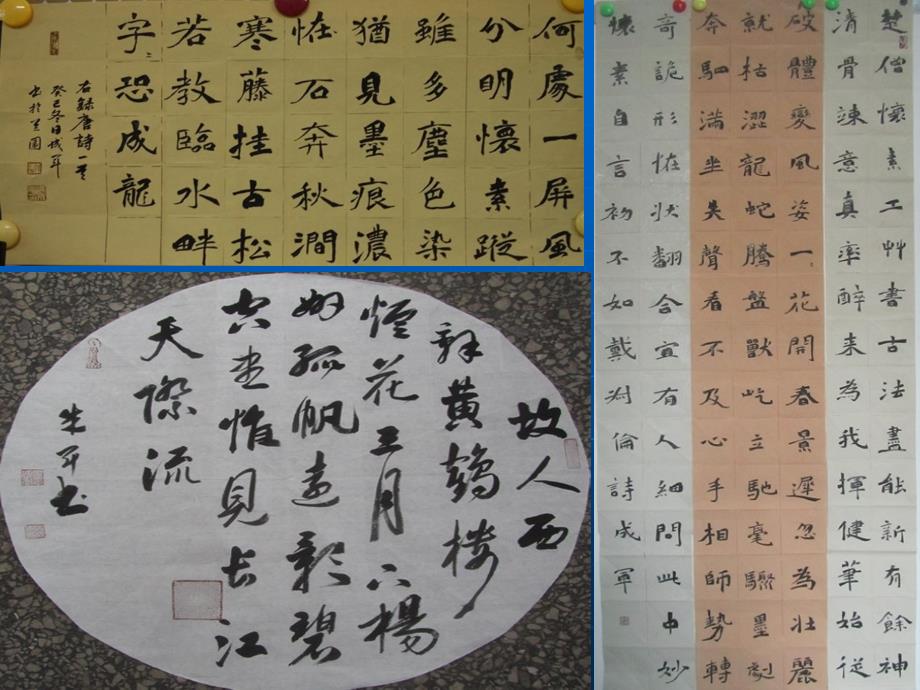 何處一屏風
分明懷素蹤
雖多塵色染
猶見墨痕濃
恠石奔秋澗
寒藤挂古松
若教臨水畔
字〻恐成龍
右録唐詩一首
癸巳冬日成軍
故人西
辭黃鶴樓
煙花三月下楊
州孤帆遠影碧
空盡惟見長江
天際流
朱平書
楚僧懷素工艸書古法盡能新有餘神
清骨竦意真率醉来為我揮健筆始從
破體變風姿一〻花開春景遲忽為壯麗
就枯澀龍蛇騰盤獸屹立馳毫驟墨劇
奔駟滿坐失聲看不及心手相師勢轉
奇詭形恠狀翻合宜有人細問此中妙
懷素自言初不如戴叔倫詩成軍